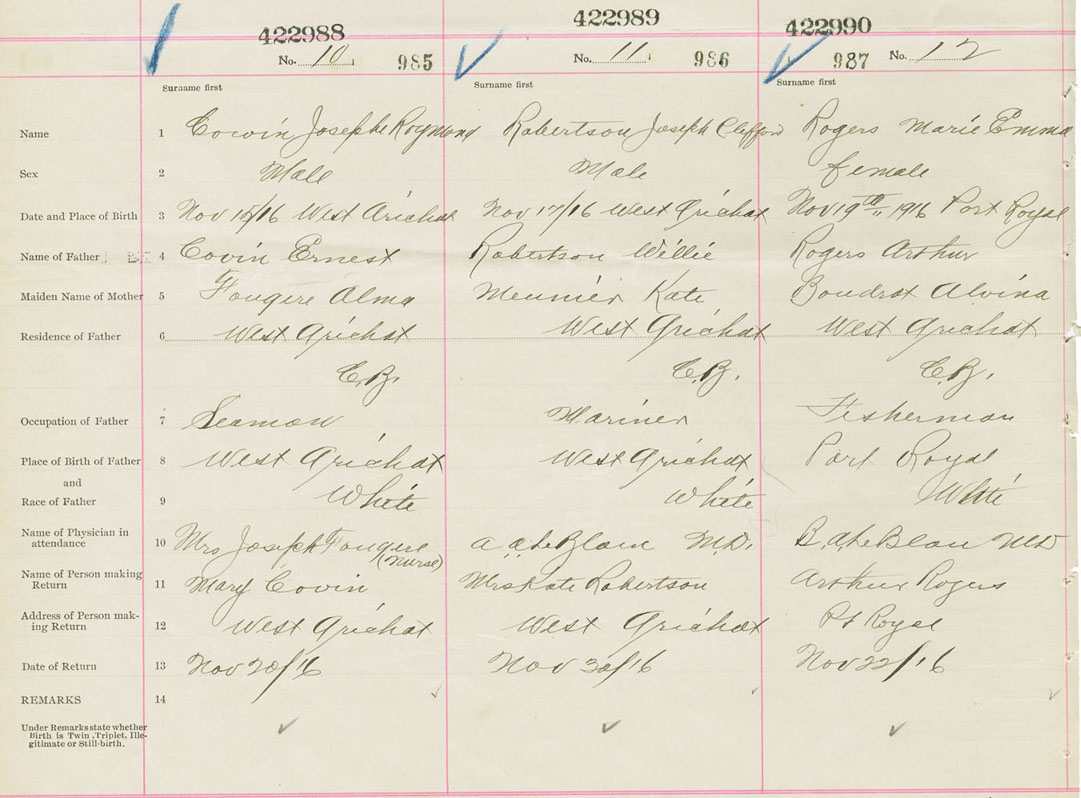 422988 422989 422990
No. 10 985 No. 11 986 987 No. 12
Surname first Surname first Surname first
Name 1 Covin Josephe Raymond Robertson Joseph Clifford Rogers Marie Emma
Sex 2 Male Male female
Date and Place of Birth 3 Nov 15/16 West Arichat Nov 17/16 West Arichat Nov 19th 1916 Port Royal
Name of Father 4 Covin Ernest Robertson Willie Rogers Arthur
Maiden Name of Mother 5 Fougere Alma Meunier Kate Boudrot Alvina
Residence of Father 6 West Arichat West Arichat West Arichat
C.B. C.B. C.B.
Occupation of Father 7 Seaman Mariner Fisherman
Place of Birth of Father 8 West Arichat West Arichat Port Royal
and
Race of Father 9 White White White
Name of Physician in
attendance 10 Mrs Joseph Fougere LeBlanc MD. LeBlanc MD
(Nurse)
Name of Person making
Return 11 Mary Covin Mrs Kate Robertson Arthur Rogers
Address of Person mak-
ing Return 12 West Arichat West Arichat Pt Royal
Date of Return 13 Nov 20/16 Nov 30/16 Nov 22/16
REMARKS 14
Under Remarks state whether
Birth is Twin, Triplet, Ille-
gitimate or Still-birth.